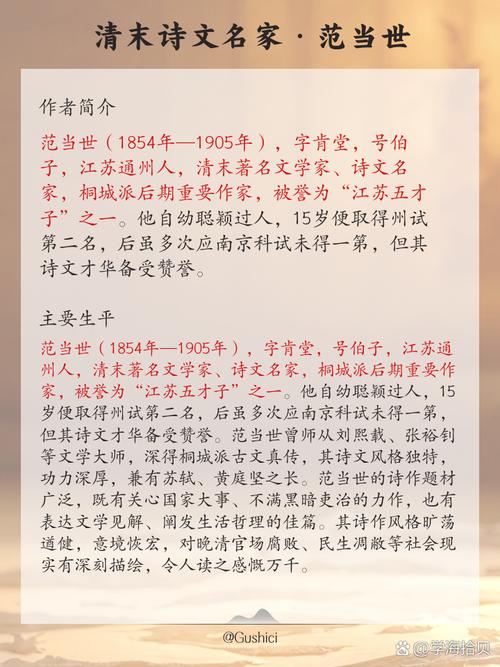 清末诗文名家·范当世
作者简介
范当世（1854年—1905年），字肯堂，号伯
子，江苏通州人，清末著名文学家、诗文名
家，桐城派后期重要作家，被誉为“江苏五才
子”之一。他自幼聪颖过人，15岁便取得州试
第二名，后虽多次应南京科试未得一第，但其
诗文才华备受赞誉。
主要生平
范当世（1854年—1905年），字肯堂，号伯子，江苏通
州人，清末著名文学家、诗文名家，桐城派后期重要作
家，被誉为“江苏五才子”之一。他自幼聪颖过人，15
岁便取得州试第二名，后虽多次应南京科试未得一第，
但其诗文才华备受赞誉。范当世曾师从刘熙载、张裕钊
等文学大师，深得桐城派古文真传，其诗文风格独特，
功力深厚，兼有苏轼、黄庭坚之长。范当世的诗作题材
广泛，既有关心国家大事、不满黑暗吏治的力作，也有
表达文学见解、阐发生活哲理的佳篇。其诗作风格旷荡
遒健，意境恢宏，对晚清官场腐败、民生凋敝等社会现
实有深刻描绘，令人读之感慨万千。
@Gushici
百家号/学海拾贝